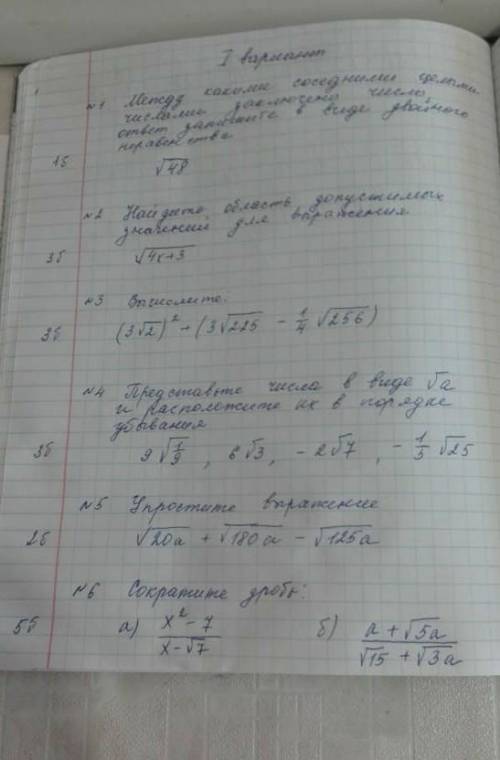 I вариант
1б №1 Между какими соседними целыми
числами заключено число
ответ запишите в виде двойного
неравенства
√48
3б №2 Найдите область допустимых
значений для выражения
√(4x+3)
3б №3 Вычислите:
(3√2)² + (3√225 - 1/4 √256)
3б №4 Представьте числа в виде √a
и расположите их в порядке
убывания
9√(1/9) , 6√3 , -2√7 , -1/5 √25
2б №5 Упростите выражение
√(20a) + √(180a) - √(125a)
5б №6 Сократите дробь:
а) (x² - 7)/(x - √7) б) (a + √(5a))/(√15 + √(3a))